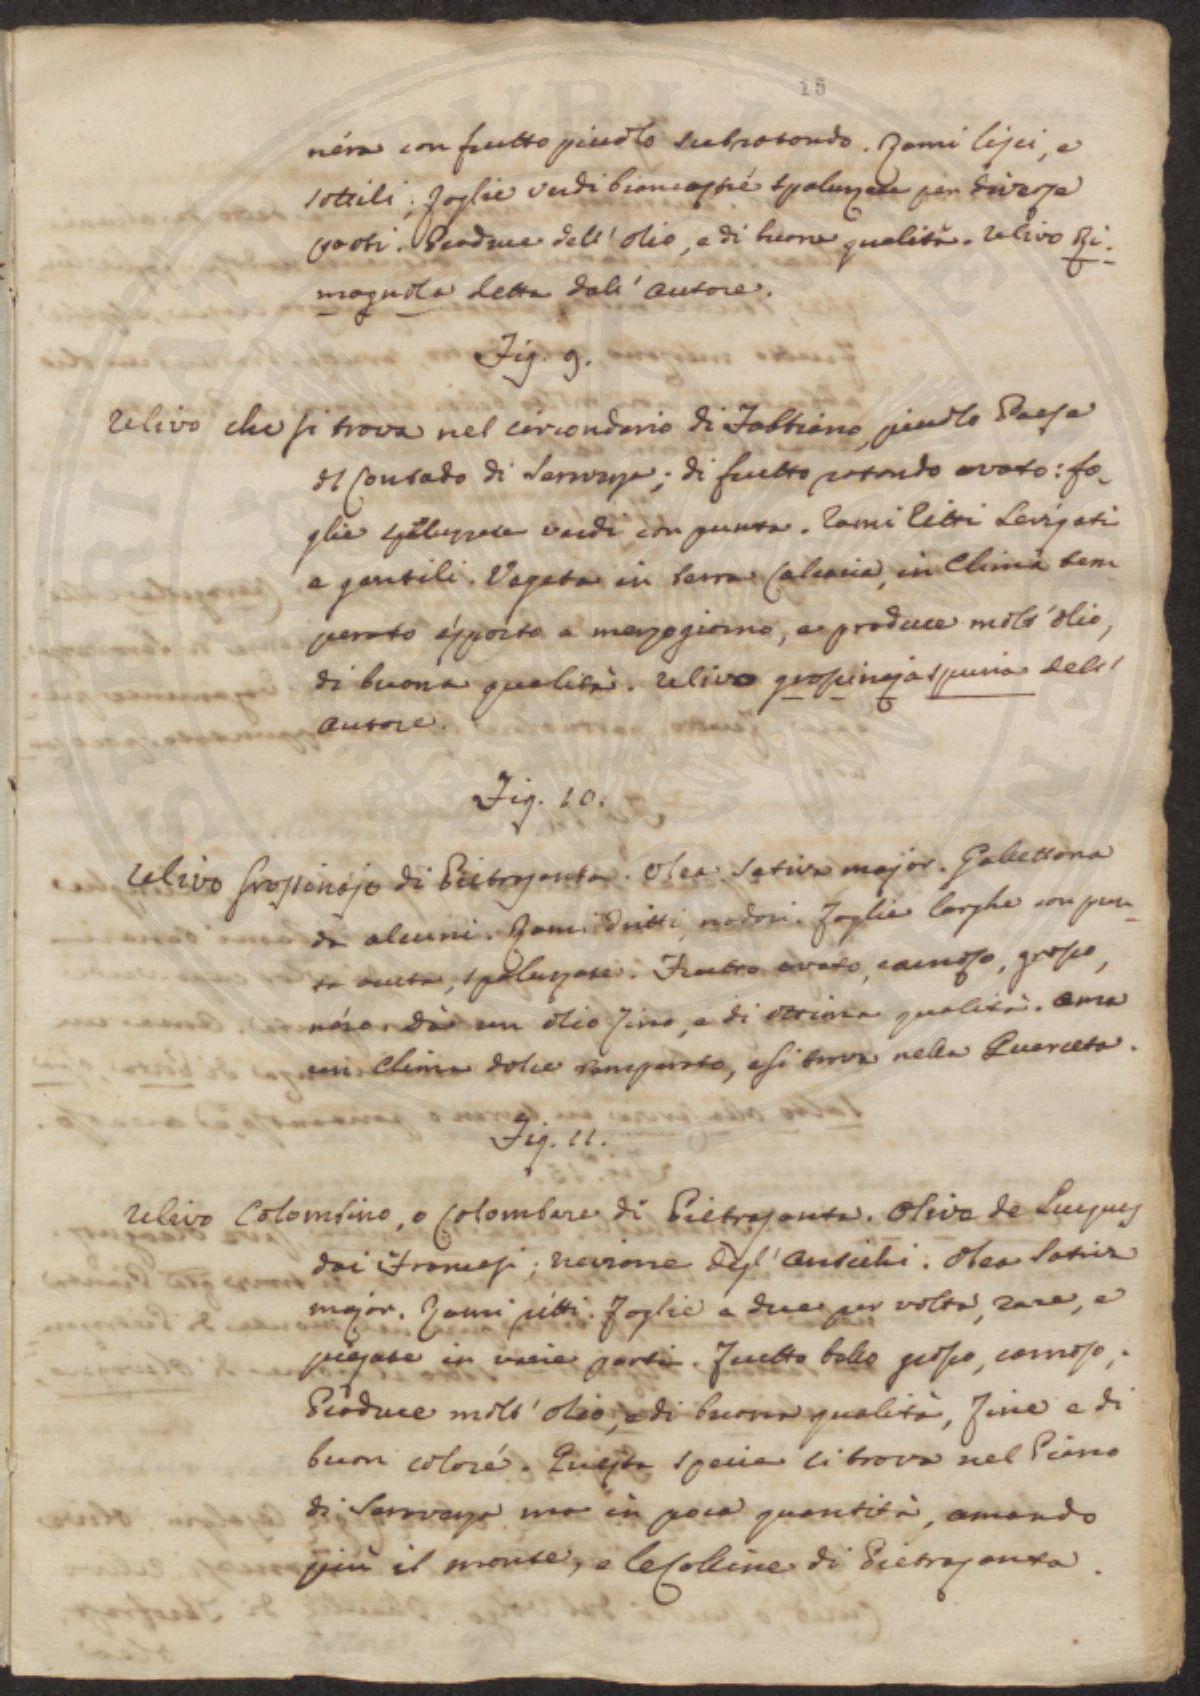 15
néra con frutto picciolo subrotondo. Rami lisci, e
sottili; foglie verdi biancastre spalmate per diverse
parti. Produce dell' olio, e di buona qualità. Ulivo Ri-
magnola detta dall' autore.
Fig. 9.
Ulivo che si trova nel circondario di Fabbiano, picciolo Paese
del Contado di Seravezza; di frutto rotondo ovato: fo-
glie verdi con punta. Rami ritti Levigati
e gentili. Vegeta in terra Calcaria, in Clima tem
perato esposto a mezzogiorno, e produce molt' olio,
di buona qualità. Ulivo grossinaja spuria dell'
autore.
Fig. 10.
Ulivo Grossinajo di Pietrasanta. Olea Sativa major. Gabettona
da alcuni. Rami dritti, nodosi. Foglie larghe con pun-
ta acuta, spalmate. Frutto ovato, carnoso, grosso,
néro. Dà un olio fino, e di ottima qualità. Ama
un Clima dolce temperato, e si trova nella Querceta.
Fig. 11.
Ulivo Colombino, o Colombare di Pietrasanta. Olive de Lucques
dai Francesi; degl' antichi. Olea Sativa
major. Rami ritti. Foglie a due per volta, rare, e
piegate in varie parti. Frutto bello grosso, carnoso,.
Produce molt' olio, e di buona qualità, fine e di
buon coloré. Questa specie si trova nel Piano
di Seravezza ma in poca quantità, amando
più il monte, e le Colline di Pietrasanta.